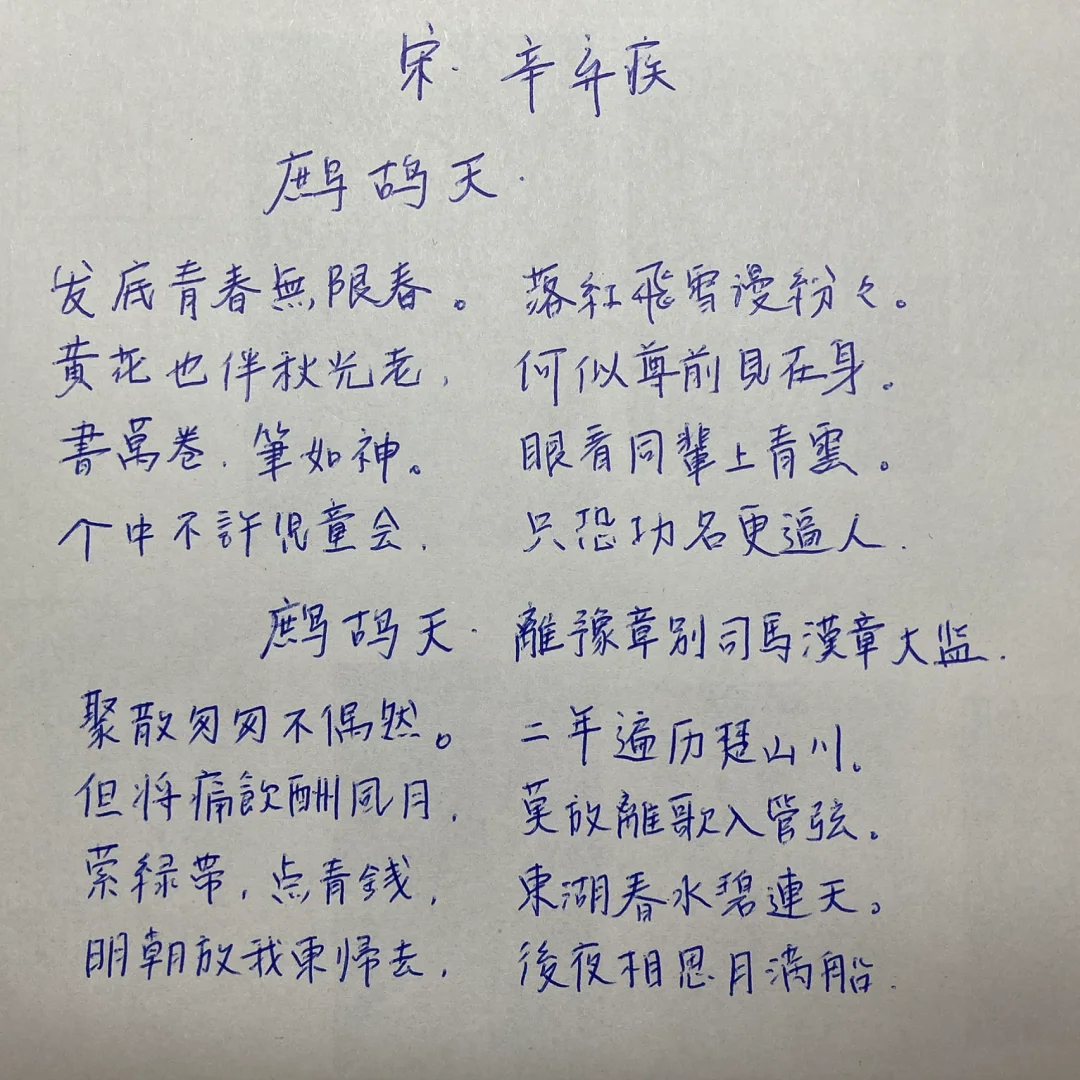 宋. 辛弃疾
鹧鸪天.
发底青春無限春。 落紅飛雪漫紛々。
黄花也伴秋光老, 何似尊前見在身.
書萬卷, 筆如神。 眼看同輩上青雲。
个中不許児童会, 只恐功名更逼人.
鹧鸪天. 離豫章别司馬漢章大监.
聚散匆匆不偶然。 二年遍历楚山川。
但将痛飲酬風月, 莫放離歌入管弦。
萦緑带, 点青錢, 東湖春水碧連天。
明朝放我東帰去, 後夜相思月满船.